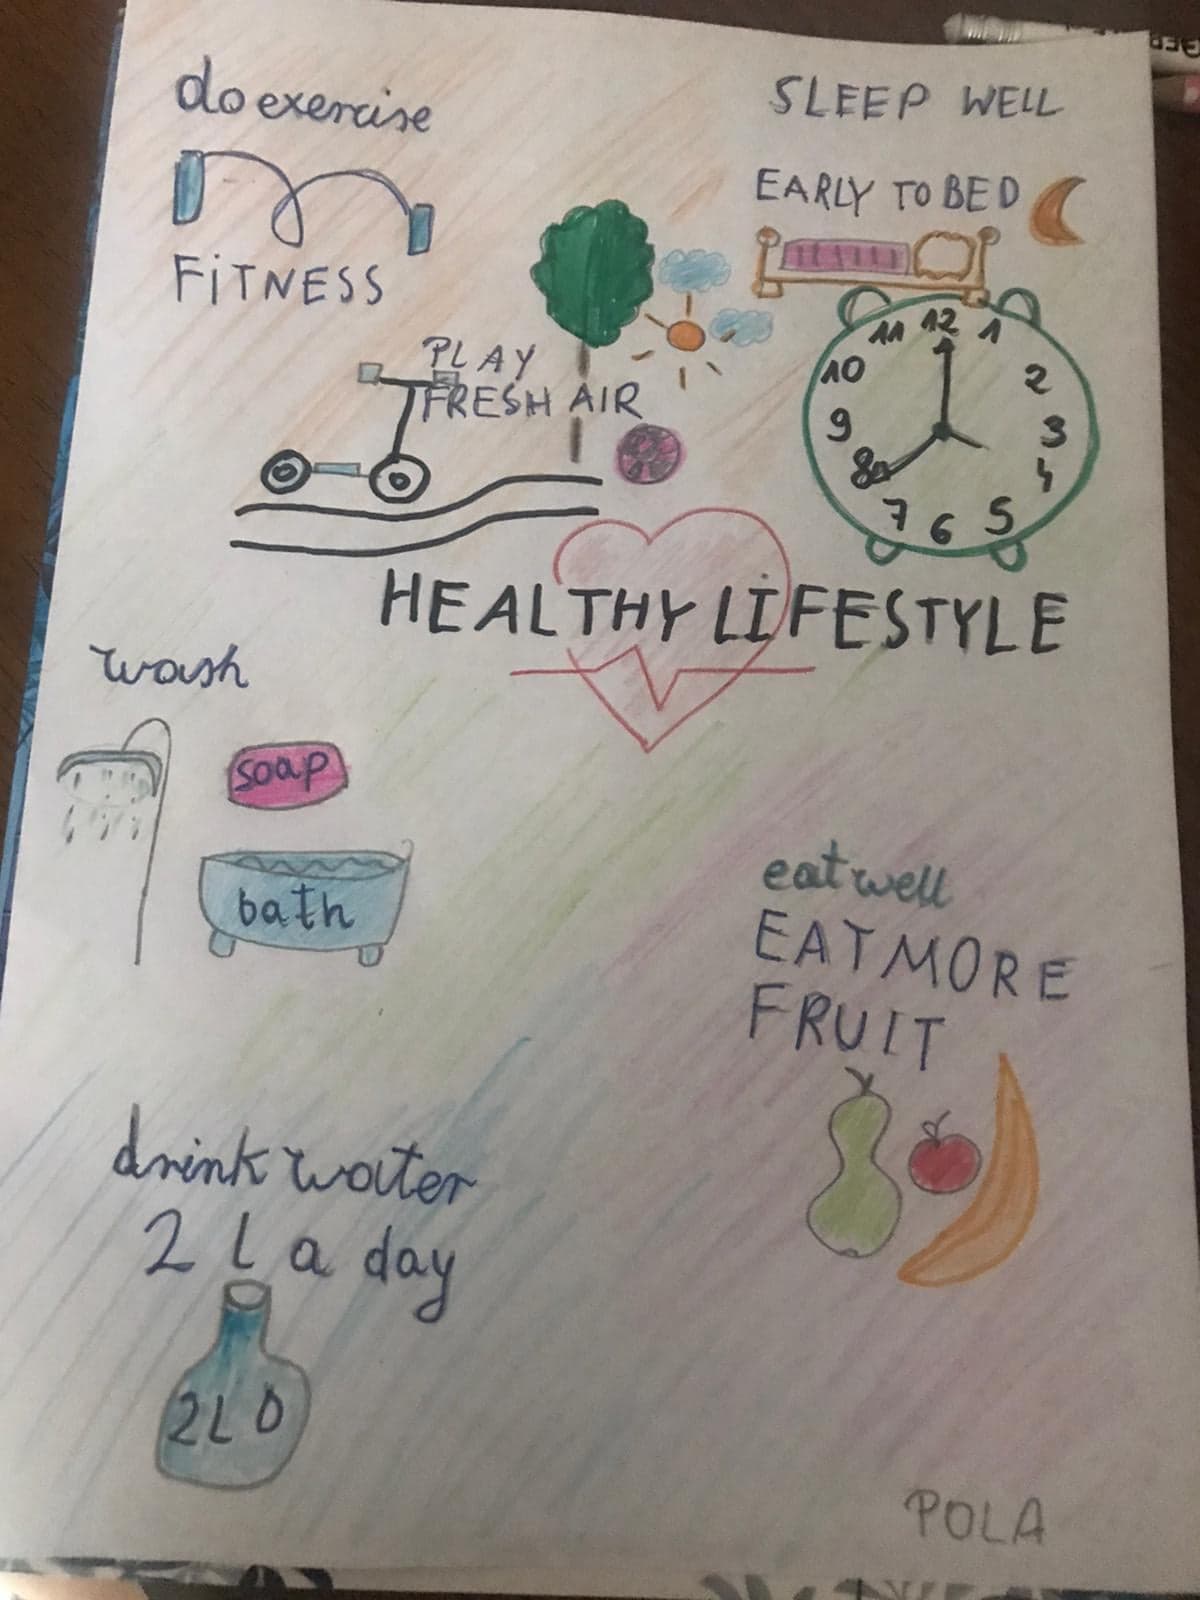 do exercise
FITNESS
SLEEP WELL
EARLY TO BED
PLAY
FRESH AIR
11 12 1
10 2
9 3
8 4
7 6 5
HEALTHY LIFESTYLE
wash
soap
bath
eat well
EAT MORE
FRUIT
drink water
2 L a day
2L D
POLA